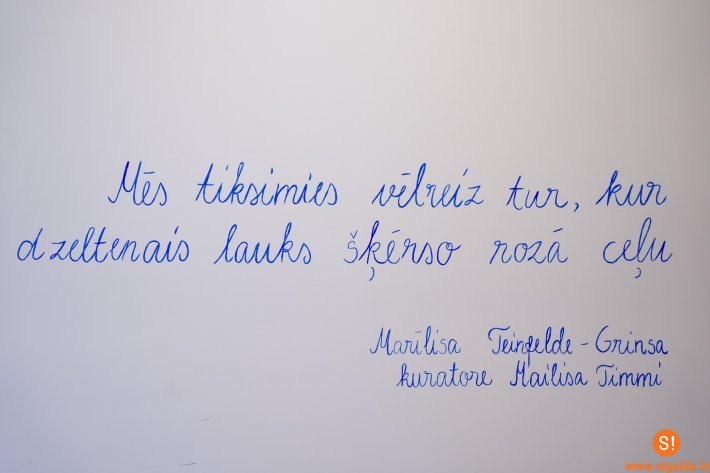 Mēs tiksimies vēlreiz tur, kur
dzeltenais lauks šķērso rozā ceļu
Marīlisa Teinfelde-Grinsa
kuratore Mailisa Timmi
S!
www.sigulda.lv